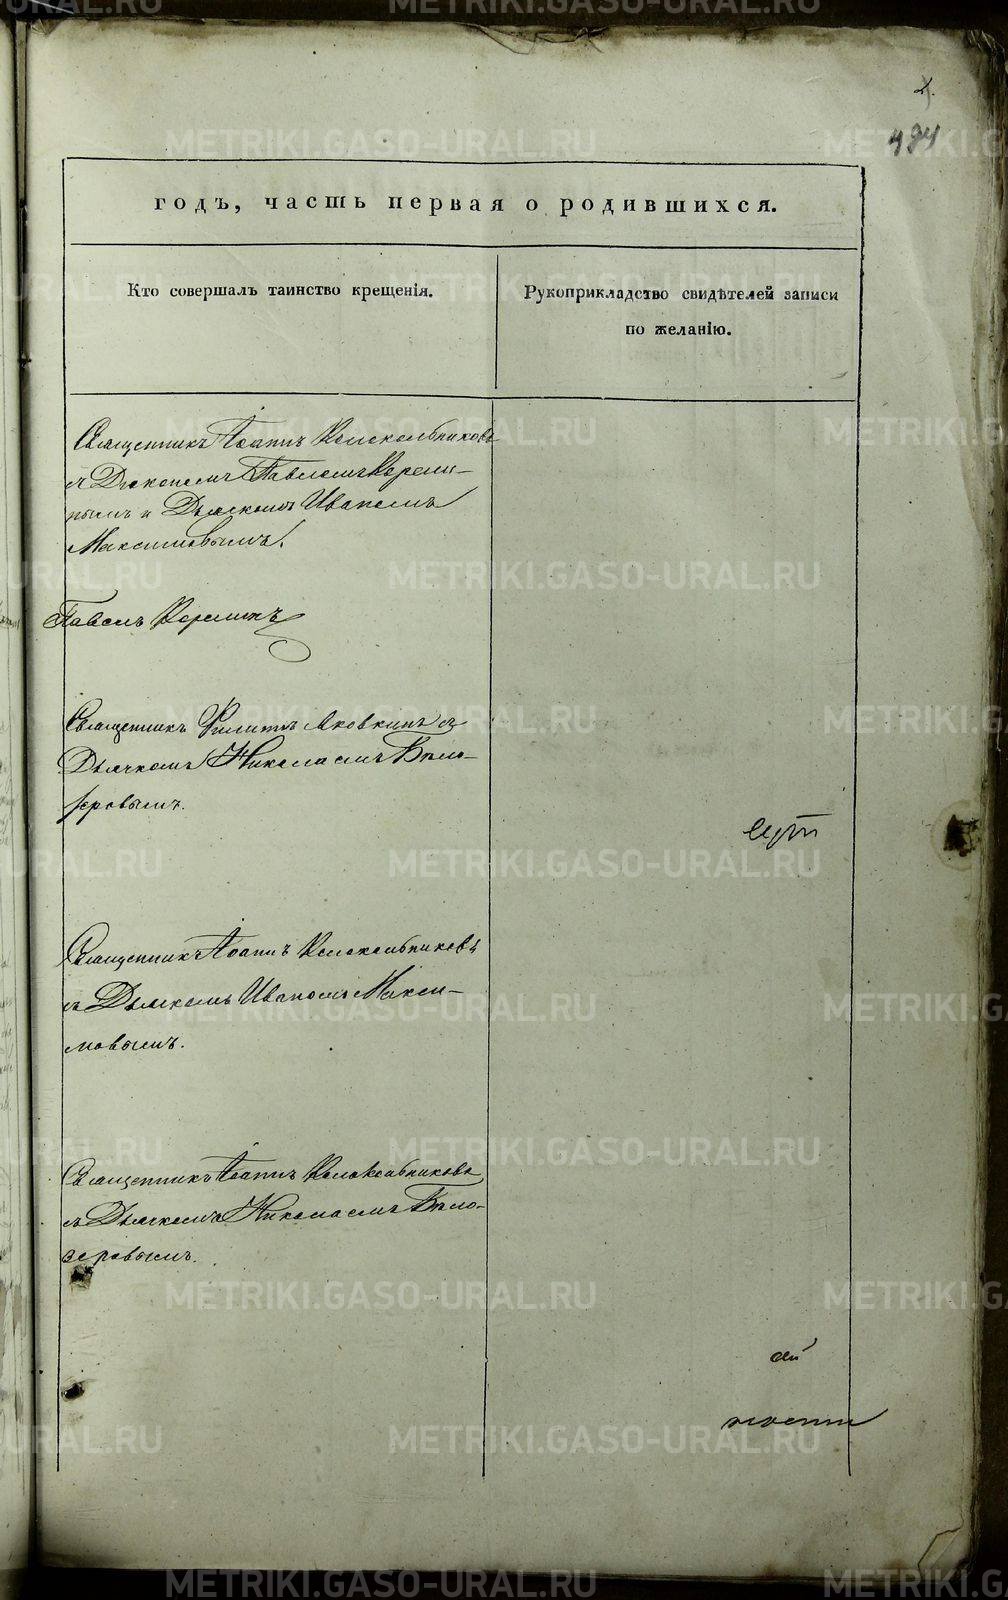 2.
484
годъ, часть первая о родившихся.
Кто совершалъ таинство крещенія.
Рукоприкладство свидѣтелей записи
по желанію.
Священникъ Іоаннъ Колокольниковъ
съ Діакономъ Павломъ Корели-
нымъ и Дьячкомъ Иваномъ
Максимовымъ.
Павелъ Корелинъ
Священникъ Филиппъ Яковкинъ съ
Дьячкомъ Николаемъ Бѣло-
зеровымъ.
Священникъ Іоаннъ Колокольниковъ
съ Дьячкомъ Иваномъ Макси-
мовымъ.
Священникъ Іоаннъ Колокольниковъ
съ Дьячкомъ Николаемъ Бѣло-
зеровымъ.
METRIKI.GASO-URAL.RU